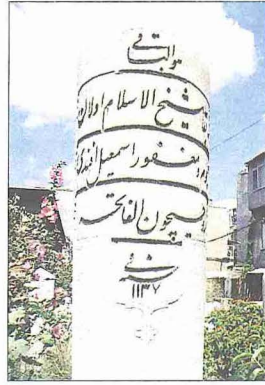 هو الباقی
شيخ الاسلام اولان
مغفور اسمعيل افندی
ايچون الفاتحه
سنه
١١٣٧